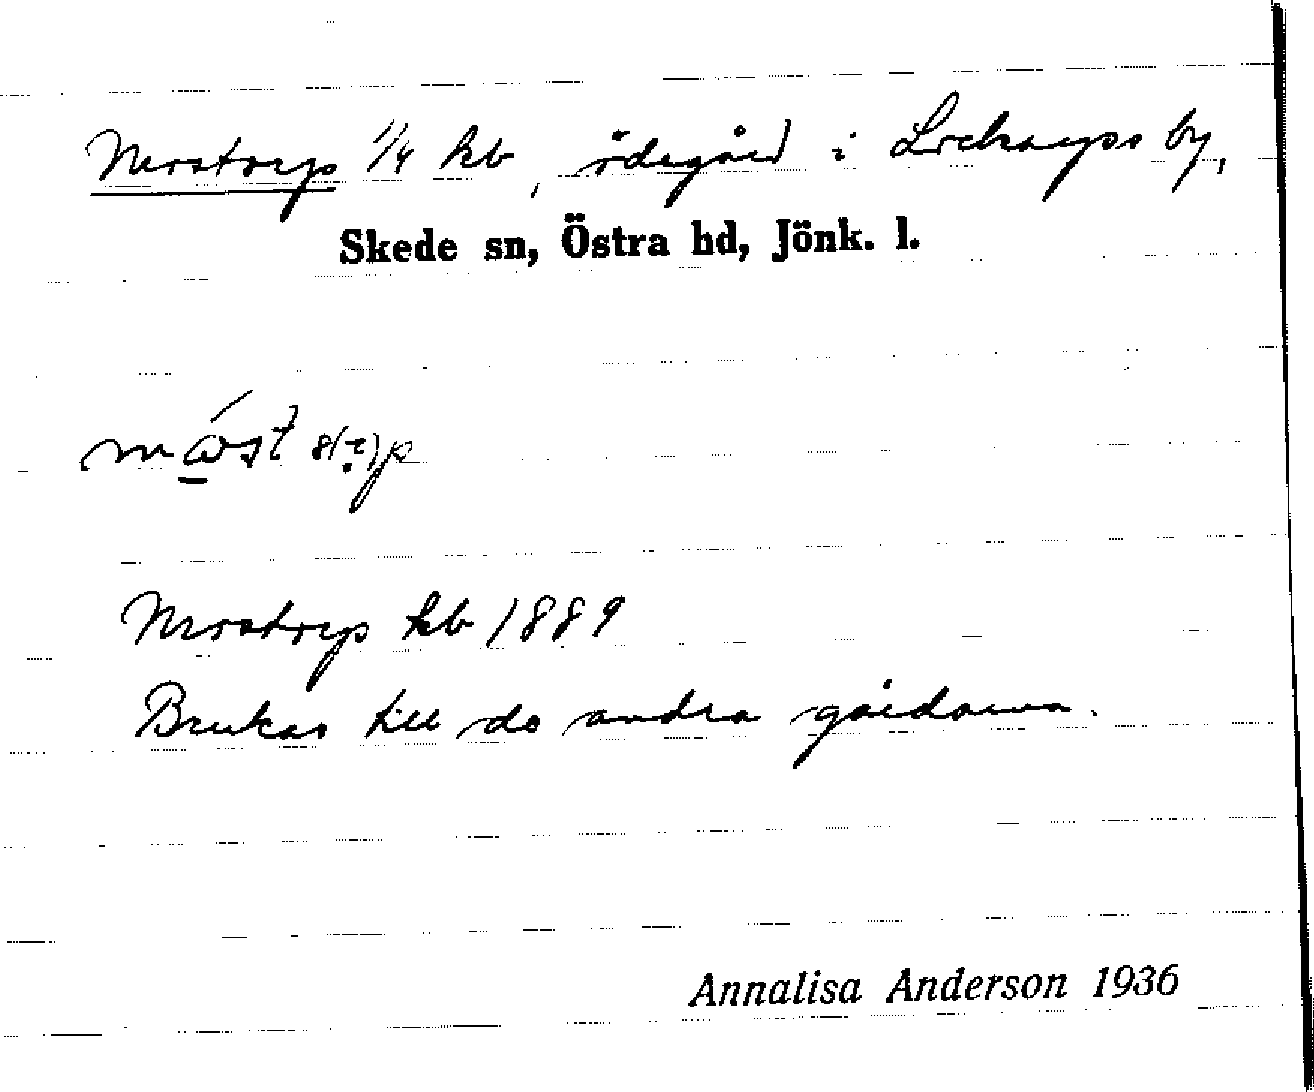 Merstorp 1/4 kb, ödegård i by,
Skede sn, Östra hd, Jönk. l.
Merstorp kb 1889
Brukas till de andra gårdarna.
Annalisa Anderson 1936